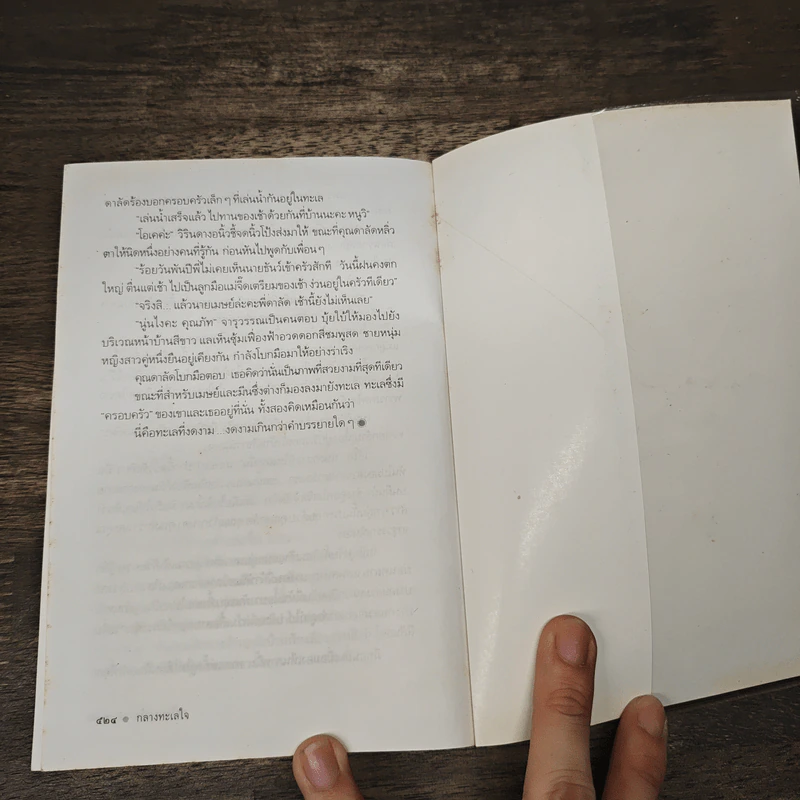 ดาลัดร้องบอกครอบครัวเล็ก ๆ ที่เล่นน้ำกันอยู่ในทะเล
“เล่นน้ำเสร็จแล้ว ไปทานของเช้าด้วยกันที่บ้านนะคะ หนูวิ”
“โอเคค่ะ” วิรินดางอนิ้วชี้จดนิ้วโป้งส่งมาให้ ขณะที่คุณดาลัดหลิ่ว
ตาให้นิดหนึ่งอย่างคนที่รู้กัน ก่อนหันไปพูดกับเพื่อน ๆ
“ร้อยวันพันปีพี่ไม่เคยเห็นนายธันว์เข้าครัวสักที วันนี้ฝนคงตก
ใหญ่ ตื่นแต่เช้า ไปเป็นลูกมือแม่จี๊ดเตรียมของเช้า ง่วนอยู่ในครัวทีเดียว”
“จริงสิ... แล้วนายเมษย์ล่ะคะพี่ดาลัด เช้านี้ยังไม่เห็นเลย”
“นู่นไงคะ คุณภัท” จารุวรรณเป็นคนตอบ บุ้ยใบ้ให้มองไปยัง
บริเวณหน้าบ้านสีขาว แลเห็นซุ้มเฟื่องฟ้าอวดดอกสีชมพูสด ชายหนุ่ม
หญิงสาวคู่หนึ่งยืนอยู่เคียงกัน กำลังโบกมือมาให้อย่างร่าเริง
คุณดาลัดโบกมือตอบ เธอคิดว่านั่นเป็นภาพที่สวยงามที่สุดทีเดียว
ขณะที่สำหรับเมษย์และมีนซึ่งต่างก็มองลงมายังทะเล ทะเลซึ่งมี
“ครอบครัว” ของเขาและเธออยู่ที่นั่น ทั้งสองคิดเหมือนกันว่า
นี่คือทะเลที่งดงาม ...งดงามเกินกว่าคำบรรยายใด ๆ
๔๒๔ กลางทะเลใจ